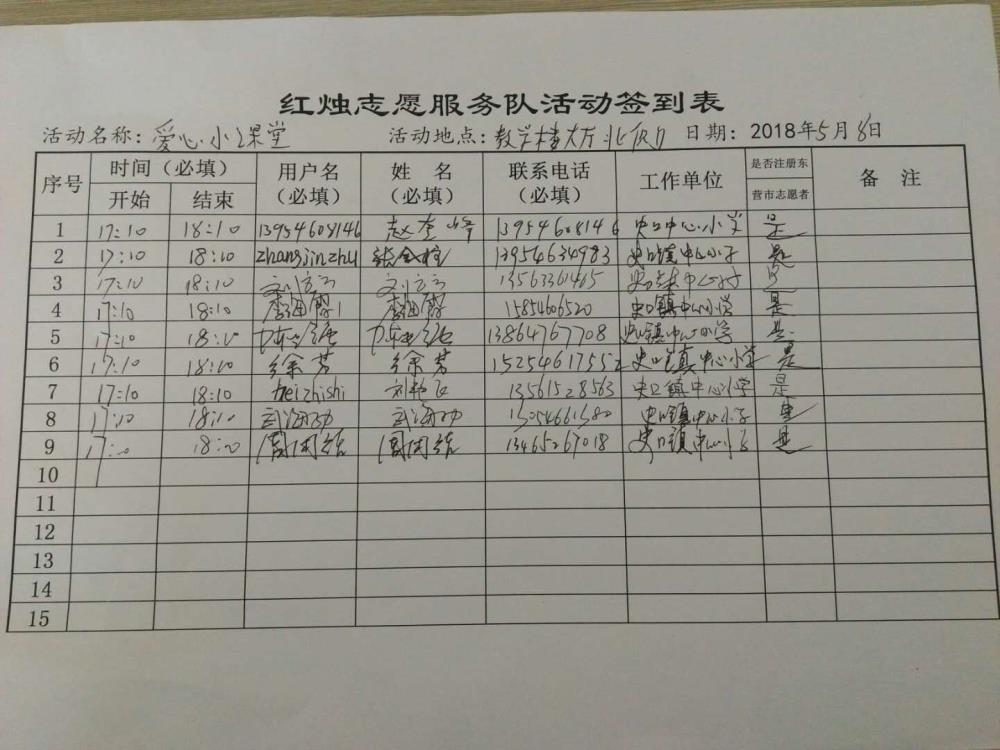 红烛志愿服务队活动签到表
活动名称：爱心小课堂 活动地点：教学楼大厅北侧 日期：2018年5月8日
序号 时间（必填） 用户名（必填） 姓名（必填） 联系电话（必填） 工作单位 是否注册东营市志愿者 备注
开始 结束
1 17:10 18:10 13954608146 赵奎峰 13954608146 史口中心小学 是
2 17:10 18:10 zhangjinzhu 张金柱 13954634983 史口镇中心小学 是
3 17:10 18:10 13563361465 是
4 17:10 18:10 1585466520 史口镇中心小学 是
5 17:10 18:10 13864767708 史口镇中心小学 是
6 17:10 18:10 徐芳 徐芳 15254617552 史口镇中心小学 是
7 17:10 18:10 heizhishi 刘艳 13561528563 史口镇中心小学 是
8 17:10 18:10 武海 武海 13054661380 史口镇中心小学 是
9 17:10 18:10 周 周 13465267018 史口镇中心小学 是
10
11
12
13
14
15